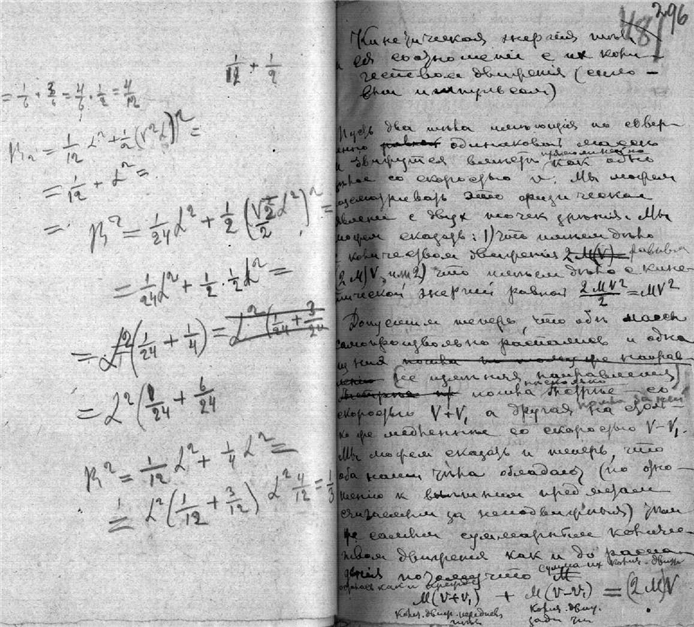 1/12 + 1/2
= 1/6 + 3/6 = 4/6 · 1/2 = 4/12
= 1/12 + L² =
= R² = 1/24 L² + 1/2 (√2/2 L²)² =
= 1/24 L² + 1/2 · 1/2 L² =
= L² (1/24 + 1/4) = L² (1/24 + 3/24
= L² (1/24 + 6/24
R² = 1/12 L² + 1/4 L² =
= L² (1/12 + 3/12) L² 4/12 = 1/3
296
48
Кинетическая энергия
ея соотношение с их коли-
чеством движения (сило-
вым импульсом)
Пусть два тела имеющия
одинаковые массы
и движутся вместе как одно
со скоростью v. Мы можем
разсматривать это физическое
явление с двух точек зрения. Мы
можем сказать: 1) что имеем дело
с количеством движения 2M(V) равным
2MV, или 2) что имеем дело с кине-
тической энергией равной 2MV²/2 = MV²
Допустим теперь, что обе массы
самопроизвольно распались и одна
(не изменяя направления)
пошла быстрее со
скоростью V+V₁ а другая на столь-
ко же медленнее со скоростью V−V₁.
Мы можем сказать и теперь, что
оба наши тела обладают (по отно-
шению к внешним предметам
считаемым за неподвижныя) тем
же самым суммарным количе-
ством движения как и до распа-
дения потому что сумма их колич. движ.
M(V+V₁) + M(V−V₁) = (2M)V
колич. движ. передняго
тела
колич. движ.
задн.